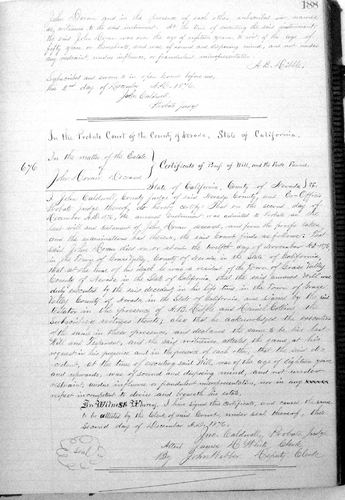 188
John Horan and in the presence of each other, subscribed our names
as witnesses to the said instrument. At the time of executing the said instrument,
the said John Horan was over the age of eighteen years, to wit of the age of
fifty years or thereabouts, and was of sound and disposing mind, and not under
any restraint, undue influence, or fraudulent misrepresentation
A. B.
Subscribed and sworn to in open Court before me,
this 2nd day of December A.D. 1876.
John Caldwell
Probate Judge
In the Probate Court of the County of Nevada, State of California.
676
In the matter of the Estate
of
John Horan Deceased
Certificate of Proof of Will, and the Facts Found
State of California, County of Nevada ss.
I John Caldwell, County Judge of said Nevada County, and Ex-Officio
Probate Judge thereof, do hereby certify: That on the second day of
December A.D. 1876, the annexed instrument was admitted to probate as the
last will and testament of John Horan, deceased, and from the proofs taken
and the examinations had therein, the said Court finds as follows: That
said John Horan died on or about the twelfth day of November A.D. 1876
in the Town of Grass Valley, County of Nevada in the State of California,
that at the time of his death he was a resident of the Town of Grass Valley
County of Nevada in the State of California, that the said annexed Will was
duly executed by the said decedent in his life time in the Town of Grass
Valley County of Nevada in the State of California, and signed by the said
testator in the presence of A. B. and Daniel Collins the
subscribing witnesses thereto; also that he acknowledged the execution
of the same in their presence, and declared the same to be his last
Will and Testament, and the said witnesses attested the same at his
request in his presence and in the presence of each other; that the said de-
cedent, at the time of executing said Will, was of the age of eighteen years
and upwards, was of sound and disposing mind, and not under
restraint, undue influence or fraudulent misrepresentation, nor in any
respect incompetent to devise and bequeath his estate.
In Witness Whereof, I have signed this certificate, and caused the same
to be attested by the Clerk of said Court, under seal thereof, this
second day of December A.D. 1876.
Jno. Caldwell, Probate Judge
Seal
Attest James H. White, Clerk
By John Webber Deputy Clerk